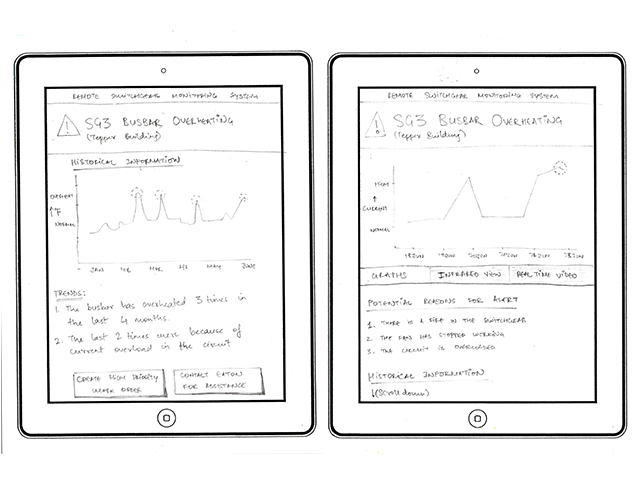 REMOTE SWITCHGEAR MONITORING SYSTEM
SG3 BUSBAR OVERHEATING
(Tepper Building)
HISTORICAL INFORMATION
OVERHEAT
↑°F
NORMAL
JAN FEB MAR APR MAY JUNE
TRENDS:
1. The busbar has overheated 3 times in
the last 4 months.
2. The last 2 times were because of
current overload in the circuit
CREATE HIGH PRIORITY
WORK ORDER
CONTACT EATON
FOR ASSISTANCE
REMOTE SWITCHGEAR MONITORING SYSTEM
SG3 BUSBAR OVERHEATING
(Tepper Building)
HIGH
↑
CURRENT
NORMAL
18 JUN 19 JUN 20 JUN 21 JUN 22 JUN 23 JUN
GRAPHS INFRARED VIEW REAL TIME VIDEO
POTENTIAL REASONS FOR ALERT
1. THERE IS A FIRE IN THE SWITCHGEAR
2. THE FAN HAS STOPPED WORKING
3. THE CIRCUIT IS OVERLOADED
HISTORICAL INFORMATION
↓(Scroll down)